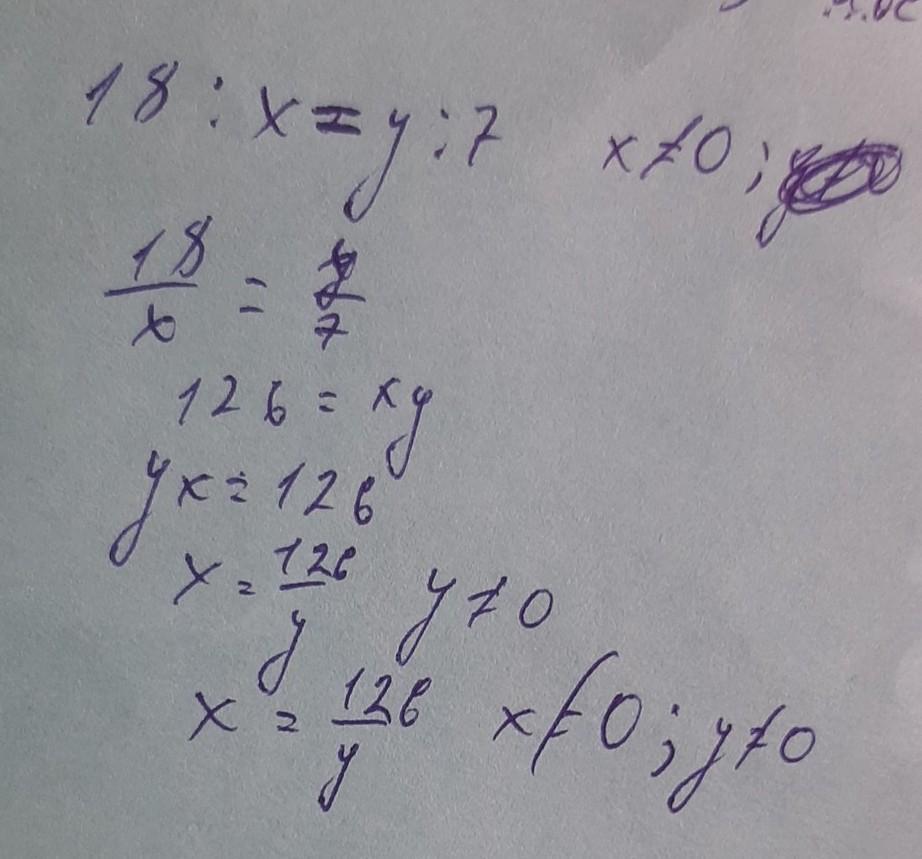 18 : x = y : 7 x ≠ 0 ;
18/x = y/7
126 = xy
yx = 126
x = 126/y y ≠ 0
x = 126/y x ≠ 0 ; y ≠ 0